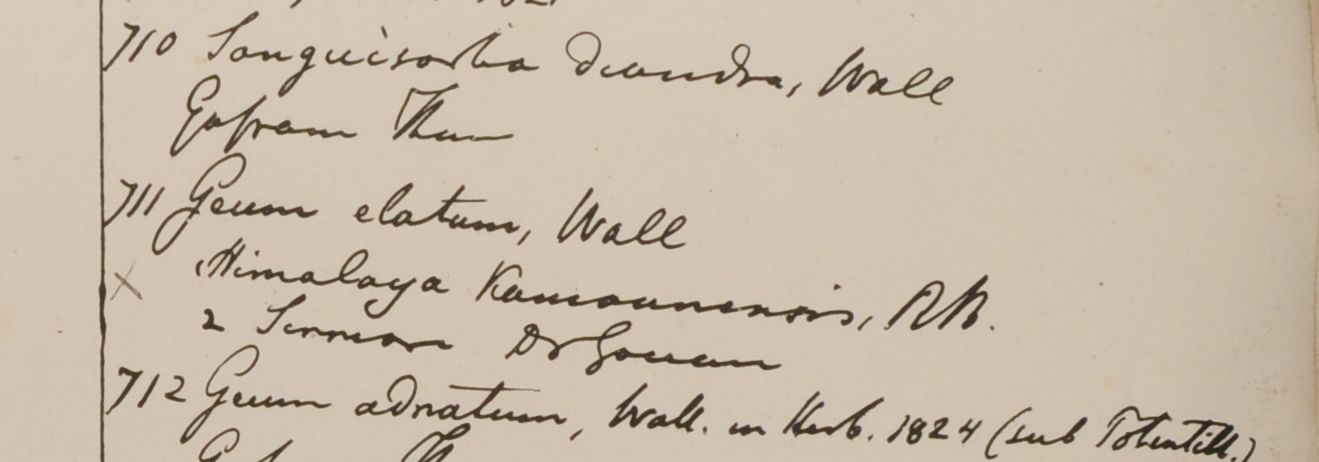 1821
710 Sanguisorba diandra, Wall
Gosfram Than
711 Geum elatum, Wall
Himalaya Kamaunensis, RB.
2 Sirmore Dr Govan
712 Geum adnatum, Wall. in Herb. 1824 (sub Potentill.)